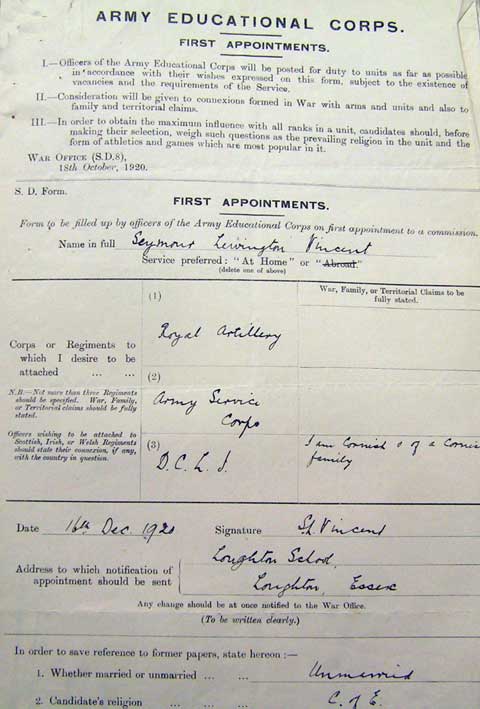 ARMY EDUCATIONAL CORPS.
FIRST APPOINTMENTS.
I.—Officers of the Army Educational Corps will be posted for duty to units as far as possible
in accordance with their wishes expressed on this form, subject to the existence of
vacancies and the requirements of the Service.
II.—Consideration will be given to connexions formed in War with arms and units and also to
family and territorial claims.
III.—In order to obtain the maximum influence with all ranks in a unit, candidates should, before
making their selection, weigh such questions as the prevailing religion in the unit and the
form of athletics and games which are most popular in it.
WAR OFFICE (S.D.8),
18th October, 1920.
S. D. Form.
FIRST APPOINTMENTS.
Form to be filled up by officers of the Army Educational Corps on first appointment to a commission.
Name in full Seymour Vincent
Service preferred: "At Home" or "Abroad."
(delete one of above)
War, Family, or Territorial Claims to be
fully stated.
Corps or Regiments to
which I desire to be
attached ... ...
N.B.—Not more than three Regiments
should be specified. War, Family,
or Territorial claims should be fully
stated.
Officers wishing to be attached to
Scottish, Irish, or Welsh Regiments
should state their connexion, if any,
with the country in question.
(1)
Royal Artillery
(2)
Army Service
Corps
(3)
D.C.L.I.
I am Cornish & of a Cornis
family
Date 16th Dec. 1920 Signature S.L. Vincent
Address to which notification of
appointment should be sent
Loughton School,
Loughton, Essex
Any change should be at once notified to the War Office.
(To be written clearly.)
In order to save reference to former papers, state hereon :—
1. Whether married or unmarried ... ... Unmarried
2. Candidate's religion ... ... ... C. of E.